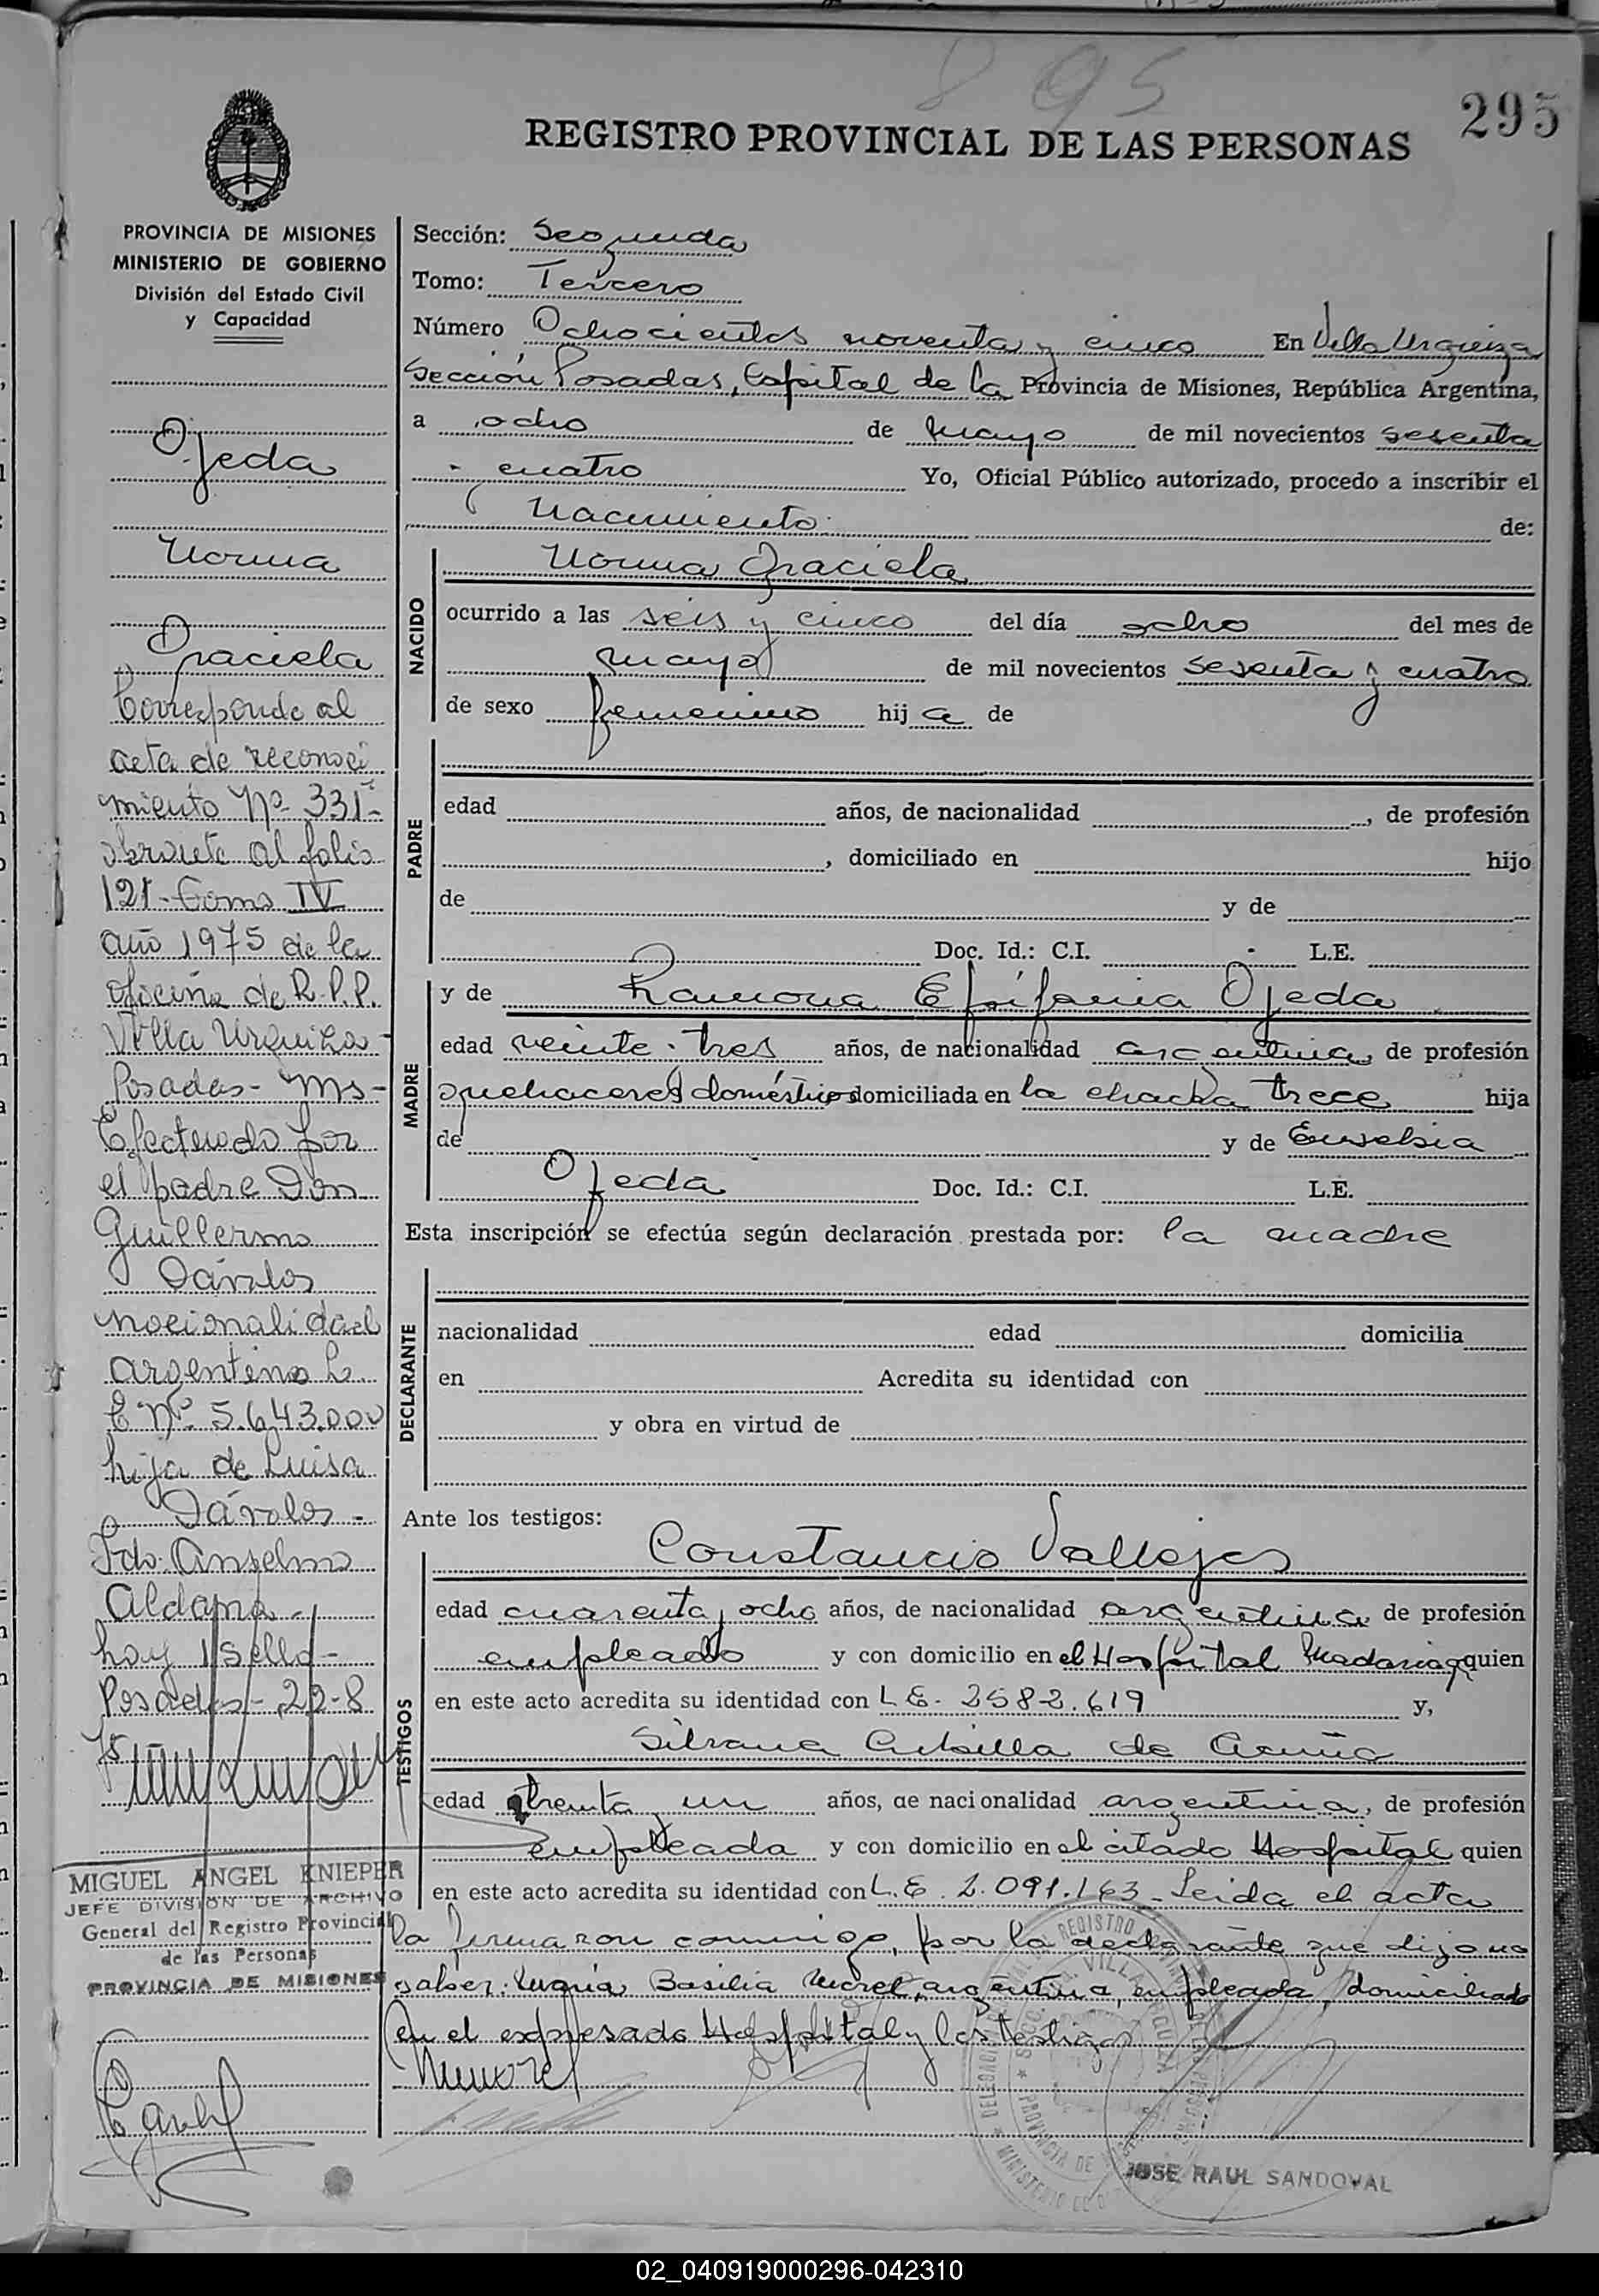 895
295
REGISTRO PROVINCIAL DE LAS PERSONAS
PROVINCIA DE MISIONES
MINISTERIO DE GOBIERNO
División del Estado Civil
y Capacidad
Ojeda
Norma
Graciela
Corresponde al
acta de reconoci
miento Nº 331-
obrante al folio
121-Tomo IV
año 1975 de la
oficina de R.P.P.
Villa Urquiza-
Posadas- Ms-
Efectuado por
el padre Don
Guillermo
Dávalos
nacionalidad
argentino L.
E Nº 5.643.000
hija de Luisa
Dávalos-
Fdo: Anselmo
Aldana-
hay 1 sello-
Posadas-22-8
75
MIGUEL ANGEL KNIEPER
JEFE DIVISION DE ARCHIVO
General del Registro Provincial
de las Personas
PROVINCIA DE MISIONES
Sección: Segunda
Tomo: Tercero
Número Ochocientos noventa y cinco En Villa Urquiza
Sección Posadas, Capital de la Provincia de Misiones, República Argentina,
a ocho de mayo de mil novecientos sesenta
cuatro Yo, Oficial Público autorizado, procedo a inscribir el
Nacimiento de:
NACIDO
Norma Graciela
ocurrido a las seis y cinco del día ocho del mes de
mayo de mil novecientos sesenta y cuatro
de sexo femenino hij a de
PADRE
edad años, de nacionalidad , de profesión
, domiciliado en hijo
de y de
Doc. Id.: C.I. L.E.
MADRE
y de Ramona Epifania Ojeda
edad veinte-tres años, de nacionalidad argentina, de profesión
quehaceres domésticos domiciliada en la chacra trece hija
de y de Eusebia
Ojeda Doc. Id.: C.I. L.E.
Esta inscripción se efectúa según declaración prestada por: la madre
DECLARANTE
nacionalidad edad domicilia
en Acredita su identidad con
y obra en virtud de
Ante los testigos:
TESTIGOS
Constancio Vallejos
edad cuarenta y ocho años, de nacionalidad argentina de profesión
empleado y con domicilio en el Hospital Madariaga quien
en este acto acredita su identidad con L E. 2582.619 y,
Silvana de Acuña
edad treinta y un años, de nacionalidad argentina, de profesión
empleada y con domicilio en el citado Hospital quien
en este acto acredita su identidad con L.E. 2.091.163- Leida el acta
la firmaron conmigo, por la declarante que dijo no
saber: María Basilia argentina, empleada, domiciliada
en el expresado Hospital y los testigos
JOSE RAUL SANDOVAL
02_040919000296-042310